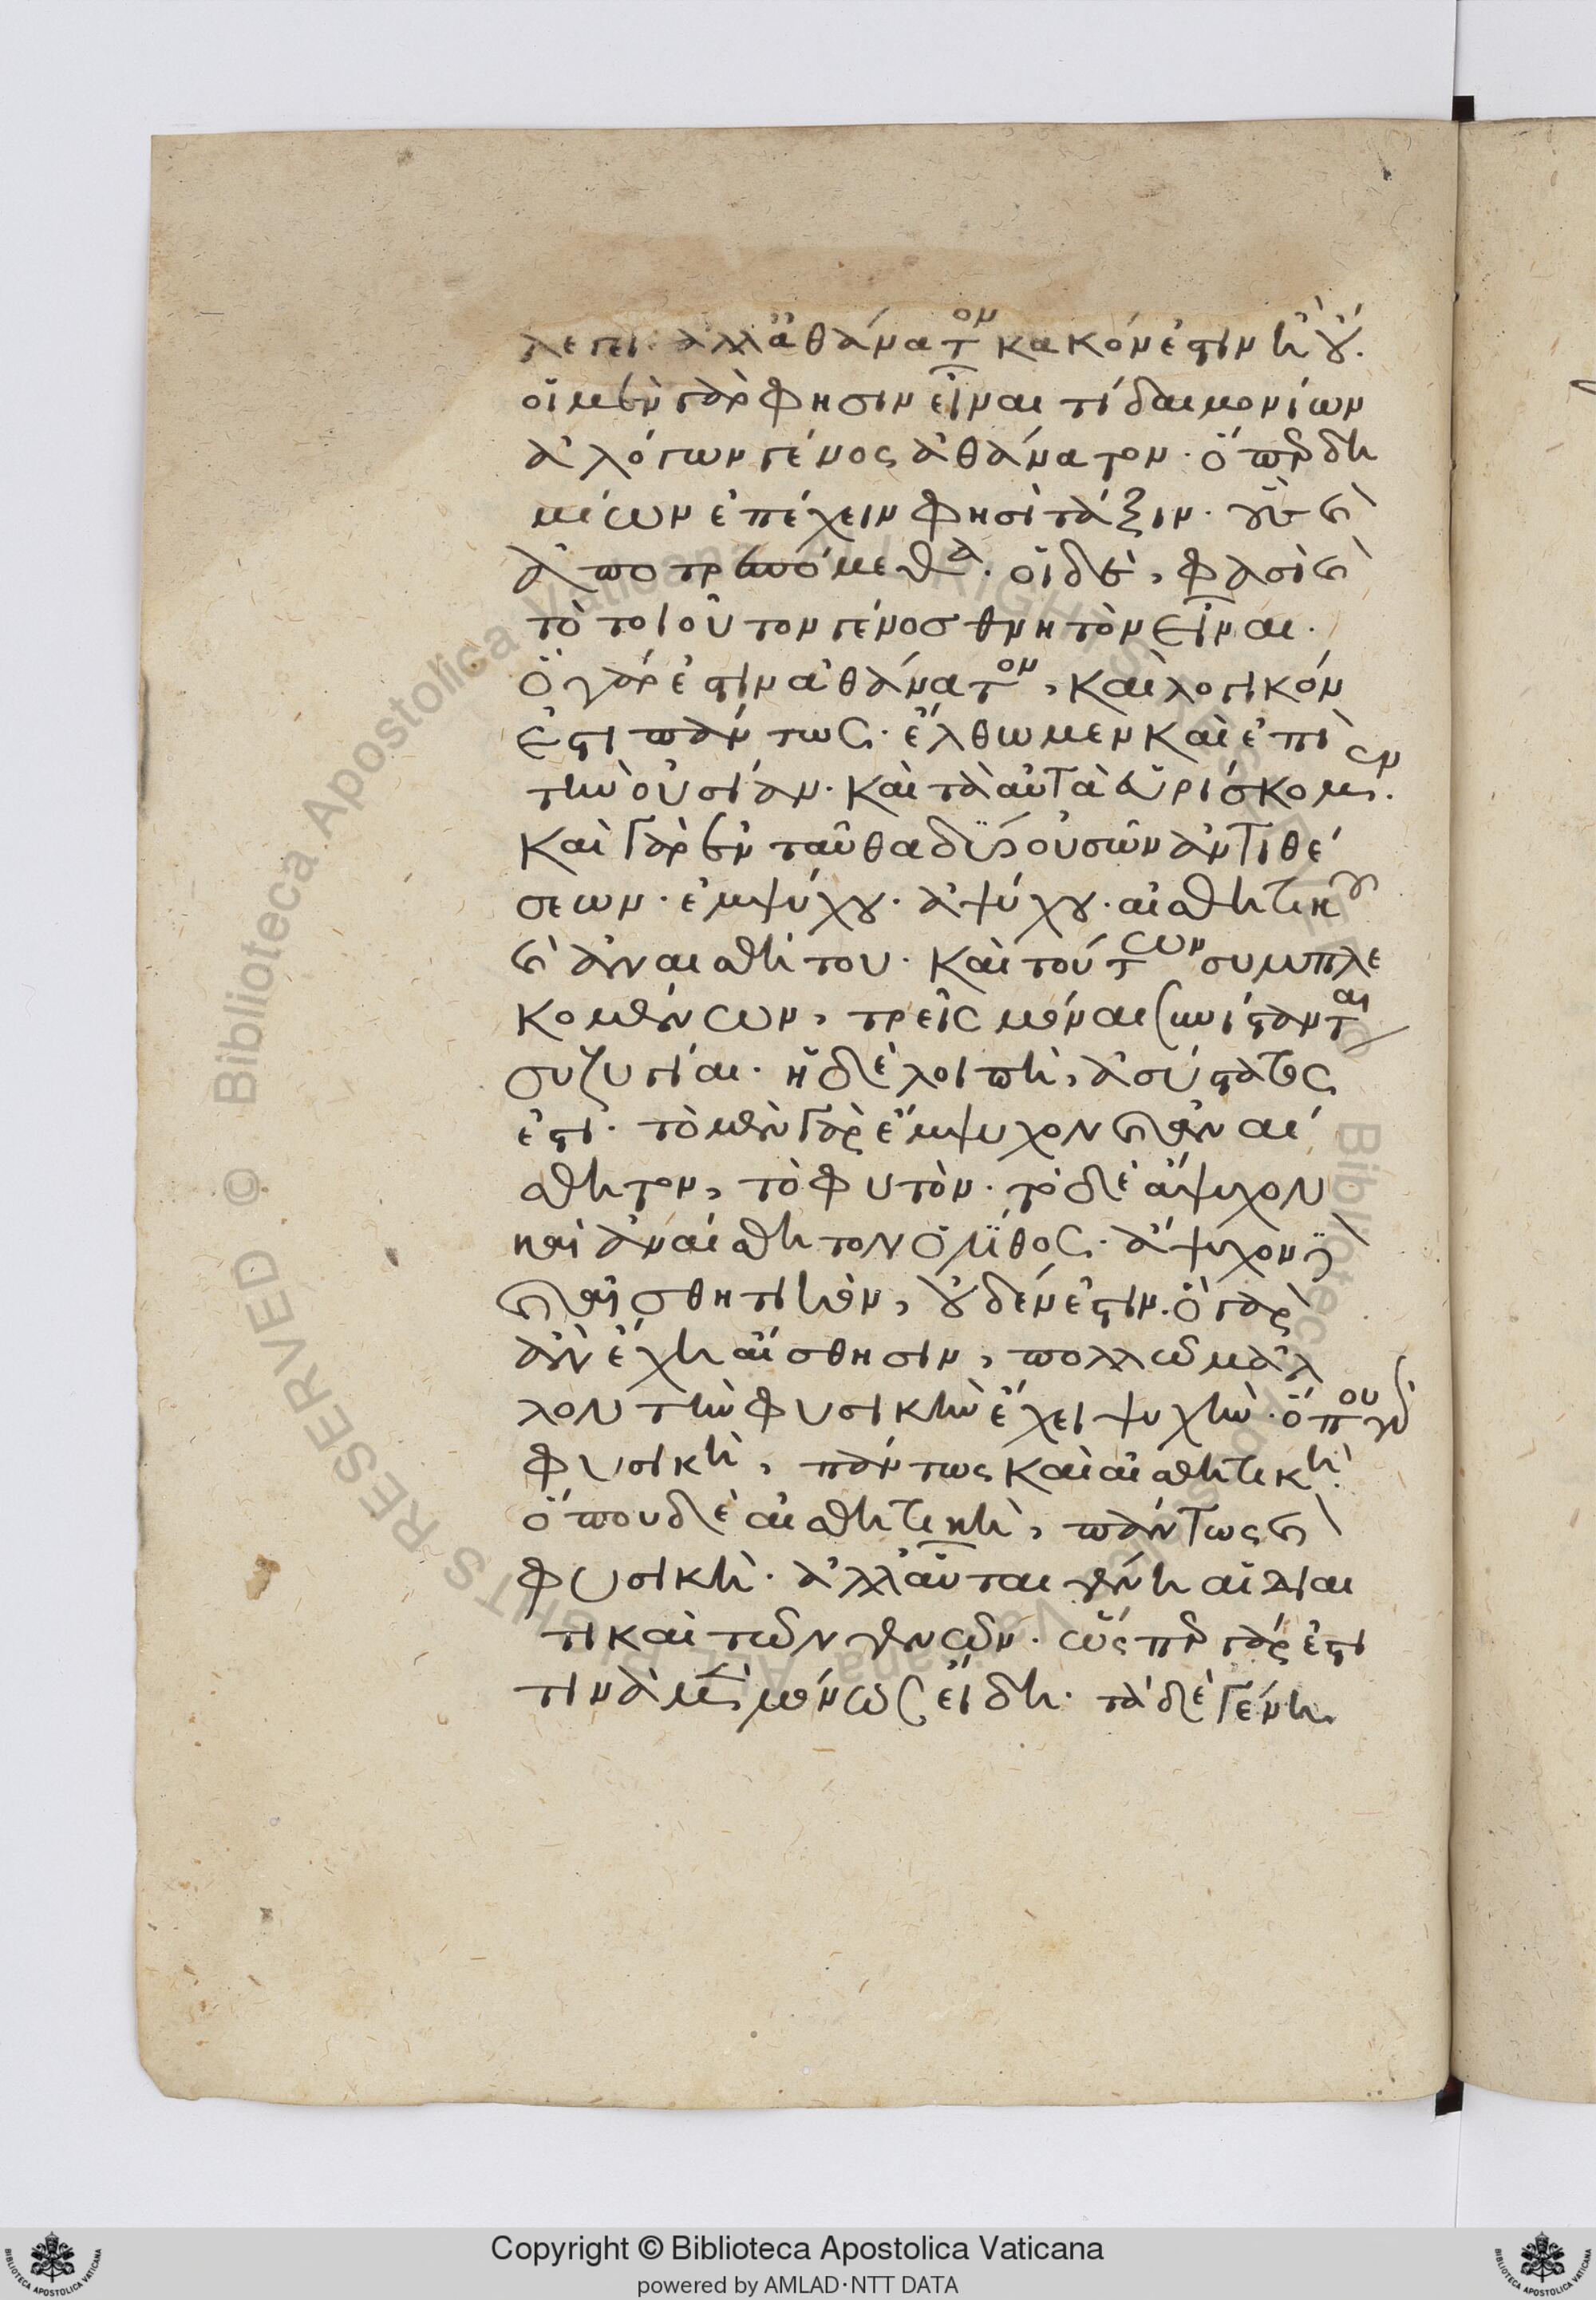 λέγει· ἀλλ' ἀθάνατον κακόν ἐστιν ἢ οὔ.
οἱ μὲν γάρ φησιν εἶναί τι δαιμονίων
ἀλόγων γένος ἀθάνατον· ὅπερ δη
μίων ἐπέχειν φησὶ τάξιν· οὓς καὶ
ἀποτρεπόμεθα. οἱ δὲ, φασὶ καὶ
τὸ τοιοῦτον γένος θνητὸν εἶναι·
ὃ γάρ ἐστιν ἀθάνατον, καὶ λογικόν
ἐστι πάντως· ἔλθωμεν καὶ ἐπὶ
τὴν οὐσίαν· καὶ τὰ αὐτὰ εὑρίσκομεν.
καὶ γὰρ ἐνταῦθα δύο οὐσῶν ἀντιθέ
σεων· ἐμψύχου· ἀψύχου· αἰσθητικοῦ
καὶ ἀναισθήτου· καὶ τούτων συμπλε
κομένων, τρεῖς μόναι συνίστανται
συζυγίαι· ἡ δὲ λοιπὴ, ἀσύστατος
ἐστι· τὸ μὲν γὰρ ἔμψυχον καὶ ἀναί
σθητον, τὸ φυτόν· τὸ δὲ ἄψυχον
καὶ ἀναίσθητον ὁ λίθος· ἄψυχον δὲ
καὶ αἰσθητικὸν, οὐδέν ἐστιν. ὃ γὰρ
ἂν ἔχη αἴσθησιν, πολλῶ μᾶλ
λον τὴν φυσικὴν ἔχει ψυχήν· ὅπου γὰρ
φυσικὴ, πάντως καὶ αἰσθητικὴ.
ὅπου δὲ αἰσθητικὴ, πάντως καὶ
φυσικὴ· ἀλλ' αὗται γένη αἱ διαι
τικαὶ τῶν γενῶν· ὥσπερ γάρ ἐστι
τινὰ μὲν μόνως εἴδη· τὰ δὲ γένη